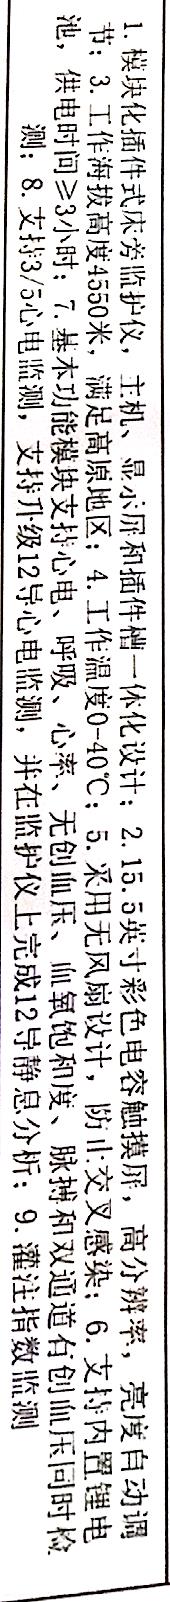 1.模块化插件式床旁监护仪，主机、显示屏和插件槽一体化设计；2.15.5英寸彩色电容触摸屏，高分辨率，亮度自动调
节；3.工作海拔高度4550米，满足高原地区；4.工作温度0-40℃；5.采用无风扇设计，防止交叉感染；6.支持内置锂电
池，供电时间≥3小时；7.基本功能模块支持心电、呼吸、心率、无创血压、血氧饱和度、脉搏和双通道有创血压同时检
测；8.支持3/5心电监测，支持升级12导心电监测，并在监护仪上完成12导静息分析；9.灌注指数监测